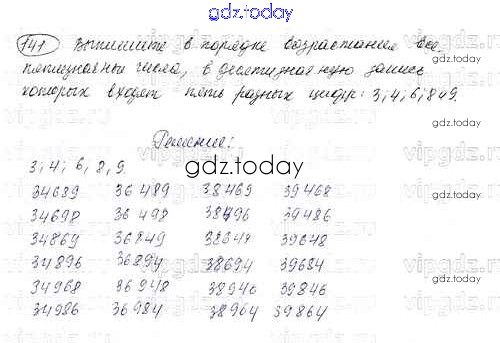 gdz.today
141 Выпишите в порядке возрастания все
пятизначные числа, в десятизначную запись
которых входят пять разных цифр: 3; 4; 6; 8 и 9.
gdz.today
Решение:
3; 4; 6, 8, 9.
gdz.today
34689 36 489 38469 39468
34698 36 498 38496 39486
34869 36849 38649 39648
34896 36894 38694 39684
34968 36 948 38946 39846
34986 36 984 38964 39864
gdz.today